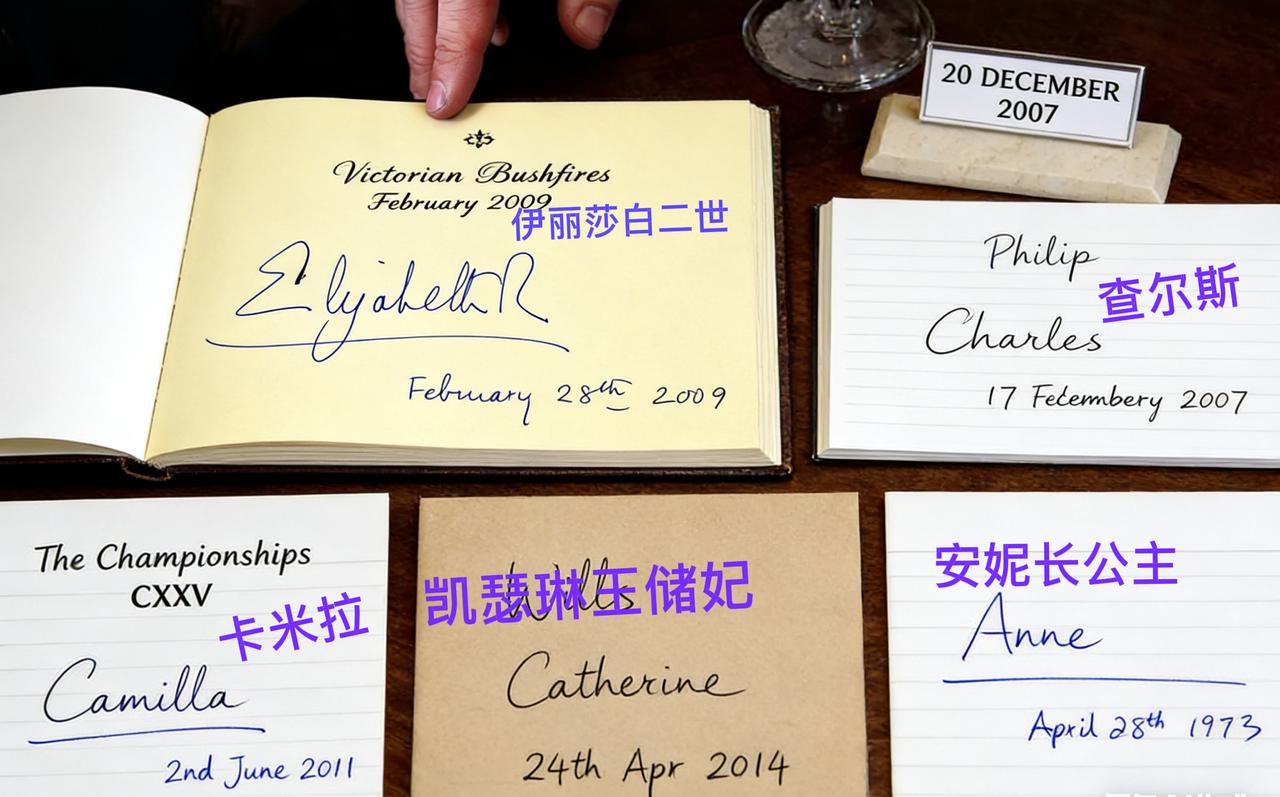 Victorian Bushfires
February 2009
伊丽莎白二世
Elizabeth R
February 28th 2009
20 DECEMBER
2007
Philip
查尔斯
Charles
17 Fecembery 2007
The Championships
CXXV
卡米拉
Camilla
2nd June 2011
凯瑟琳王储妃
Wills
Catherine
24th Apr 2014
安妮长公主
Anne
April 28th 1973